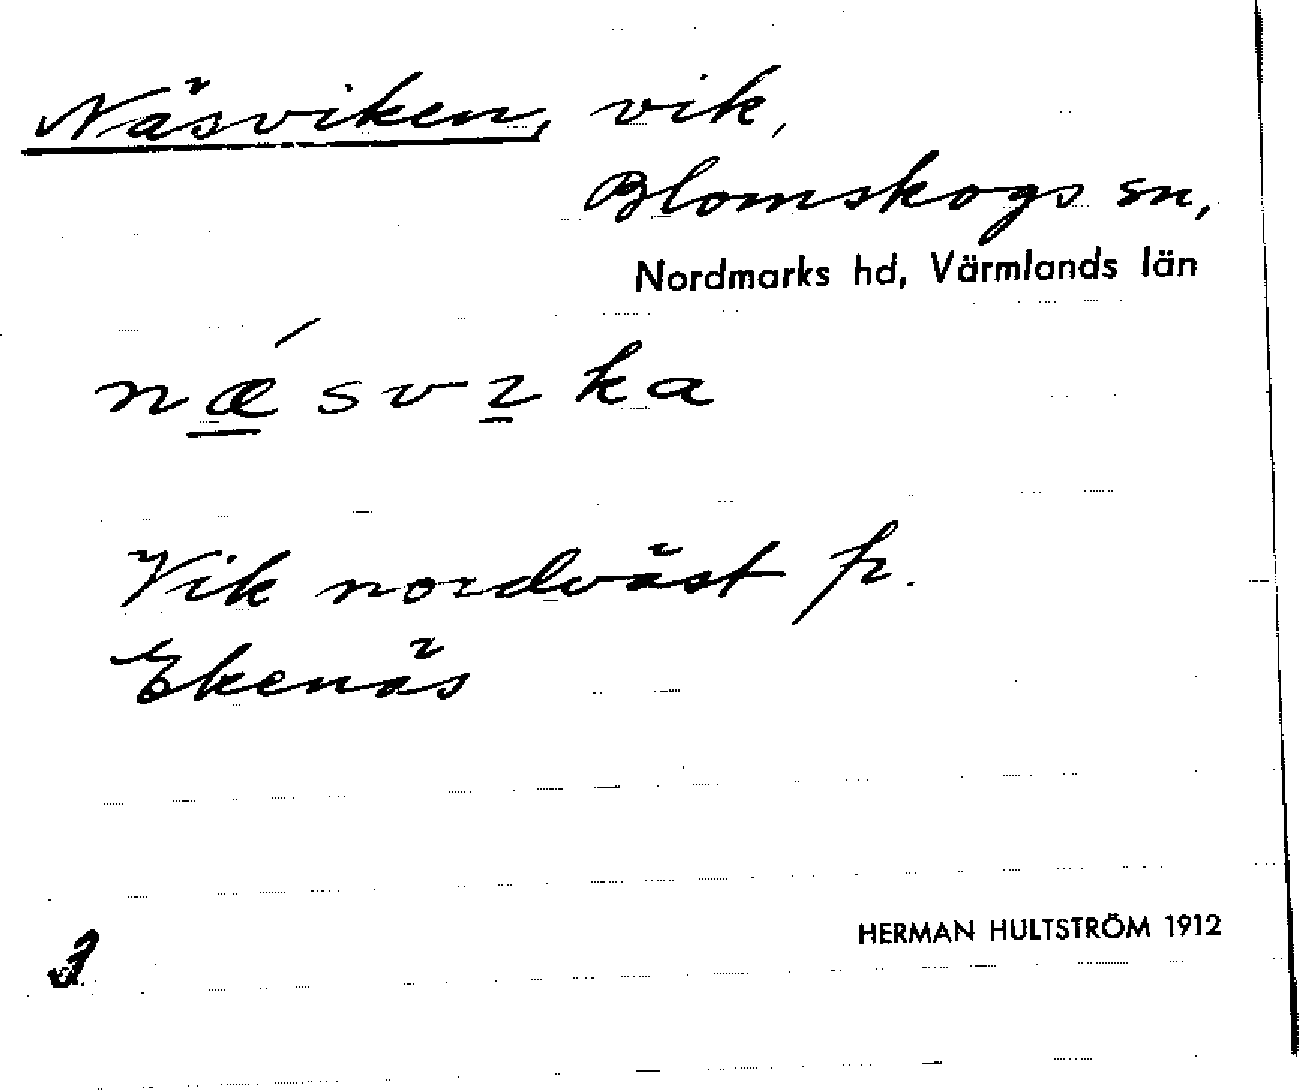 Näsviken, vik,
Blomskogs sn,
Nordmarks hd, Värmlands län
nǽsvıka
Vik nordväst fr.
Ekenäs
HERMAN HULTSTRÖM 1912